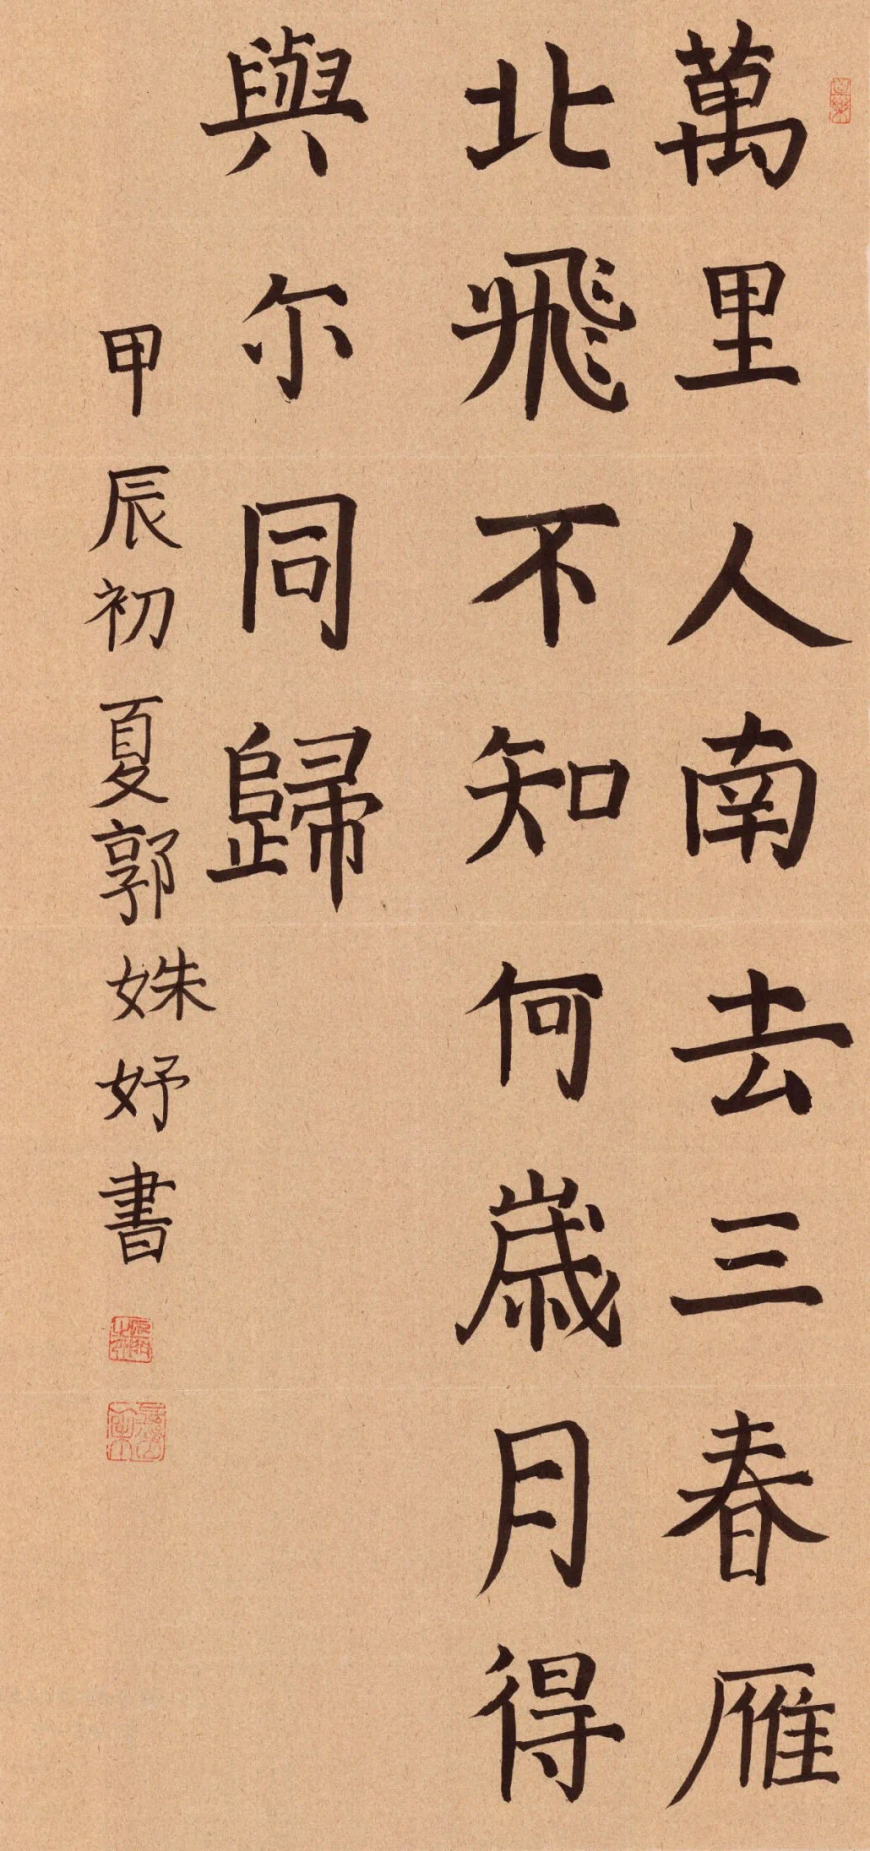 萬里人南去三春雁
北飛不知何歲月得
與尔同歸
甲辰初夏郭姝妤書